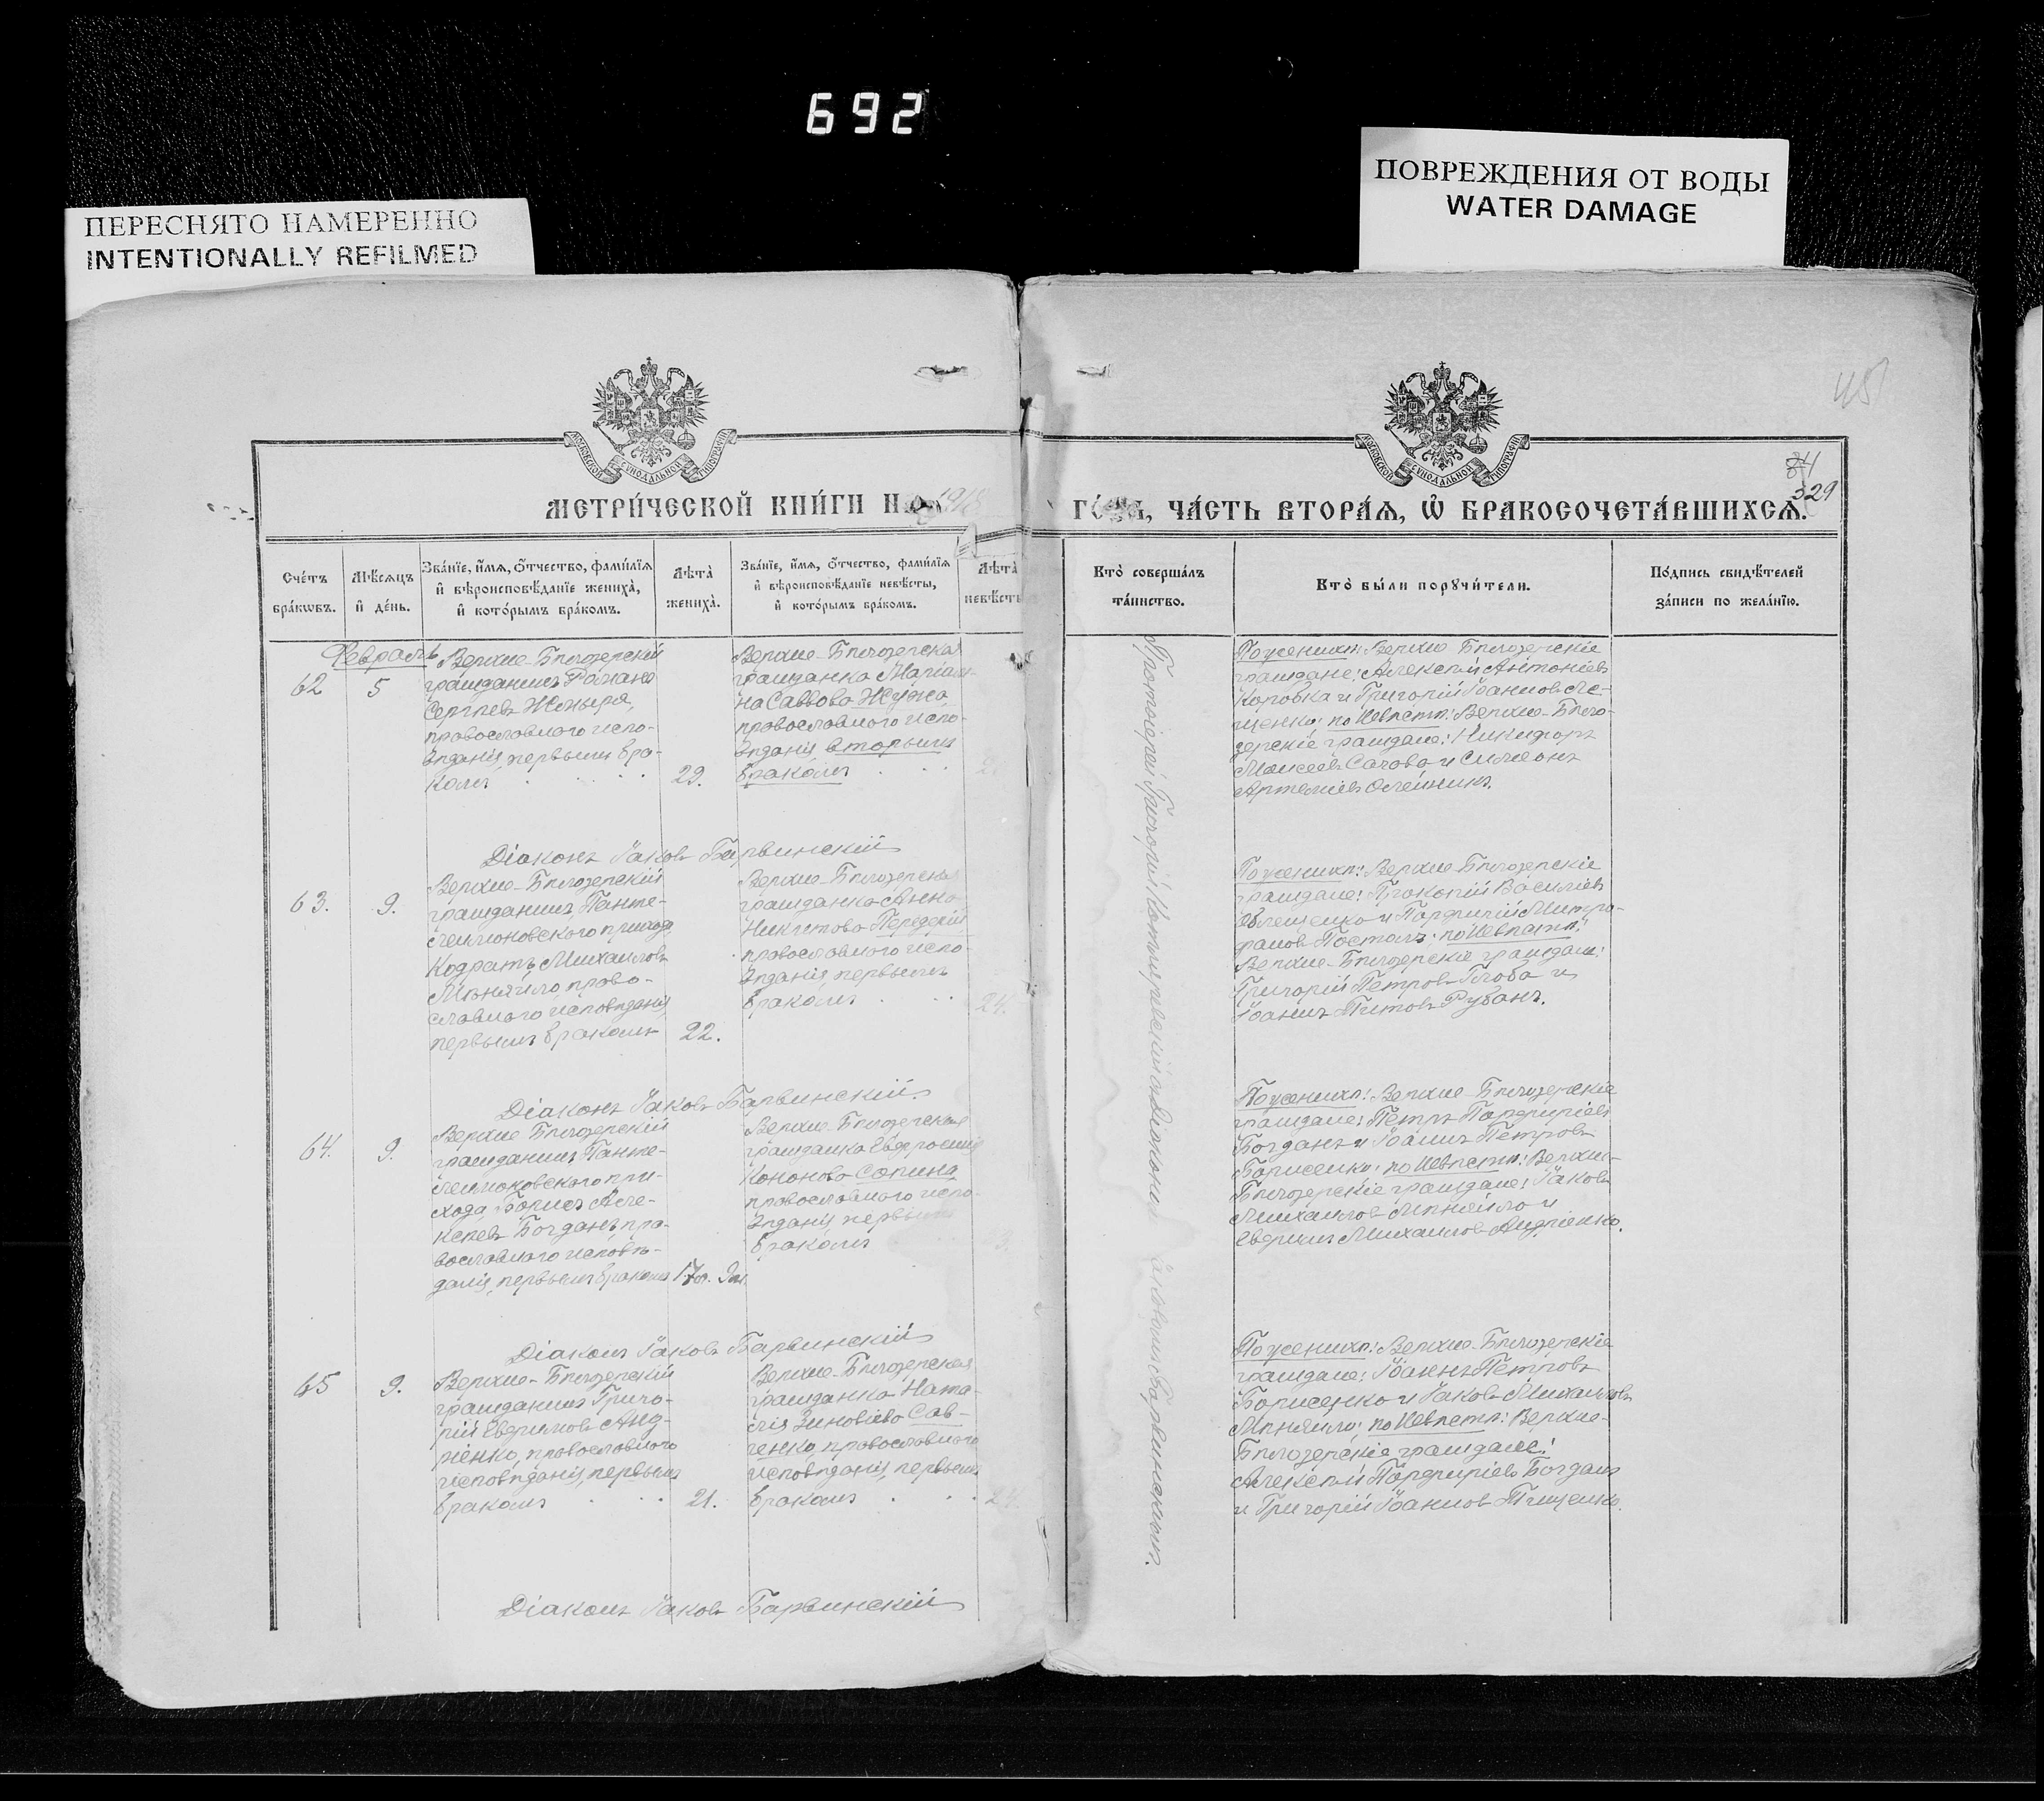 692
ПЕРЕСНЯТО НАМЕРЕННО
INTENTIONALLY REFILMED
ПОВРЕЖДЕНИЯ ОТ ВОДЫ
WATER DAMAGE
МОСКОВСКОЙ СѴНОДАЛЬНОЙ ТИПОГРАФІИ
МОСКОВСКОЙ СѴНОДАЛЬНОЙ ТИПОГРАФІИ
329
МЕТРИ́ЧЕСКОЙ КНИ́ГИ НА 1918
ГО́ДЪ, ЧА́СТЬ ВТОРА́Ѧ, Ѡ҆ БРАКОСОЧЕТА́ВШИХСѦ.
Сче́тъ
бра́кѡвъ.
Мѣ́сѧцъ
и҆ де́нь.
Зва́нїе, и҆́мѧ, ѻ҆́тчество, фами́лїѧ
и҆ вѣроисповѣ́данїе жениха̀,
и҆ кото́рымъ бра́комъ.
Лѣта̀
жениха̀.
Зва́нїе, и҆́мѧ, ѻ҆́тчество, фами́лїѧ
и҆ вѣроисповѣ́данїе невѣ́сты,
и҆ кото́рымъ бра́комъ.
Лѣта̀
невѣ́сты
Кто̀ соверша́лъ
та́инство.
Кто̀ бы́ли порꙋчи́тели.
По́дпись свидѣ́телей
за́писи по жела́нїю.
Февраль
62
5
Верхне-Бѣлозерскій
гражданинъ Романъ
Сергѣевъ Жмыря,
православного испо-
вѣданія, первымъ бра-
комъ
29.
Верхне-Бѣлозерская
гражданка Маріан-
на Саввова
православного испо-
вѣданія вторымъ
бракомъ
По женихѣ: Верхне Бѣлозерскіе
граждане: Алексѣй Антоніевъ
Коробка и Григорій Іоанновъ Ле-
щенко; по невѣстѣ: Верхне-Бѣло-
зерскіе граждане: Никифоръ
Моисеевъ и Симеонъ
Артеміевъ Олейникъ.
Діаконъ Іаковъ Барвинскій
63.
9.
Верхне-Бѣлозерскій
гражданинъ, Панте-
леимоновского прихода
Кодратъ Михаиловъ
Мѣняйло, право-
славного исповѣданія,
первымъ бракомъ
22.
Верхне-Бѣлозерская
гражданка Анна
Никитова
православного испо-
вѣданія, первымъ
бракомъ
24.
По женихѣ: Верхне-Бѣлозерскіе
граждане: Прокопій Василіевъ
и Порфирій Митро-
фановъ Постолъ; по невѣстѣ:
Верхне-Бѣлозерскіе граждане:
Григорій Петровъ Глоба и
Іоаннъ Титовъ Рубанъ.
Діаконъ Іаковъ Барвинскій.
64.
9.
Верхне Бѣлозерскій
гражданинъ Панте-
леимоновского при-
хода Борисъ Але-
ксѣевъ Богданъ, пра-
вославного исповѣ-
данія, первымъ бракомъ
Верхне-Бѣлозерская
гражданка Евфросинія
Кононова Сопина
православного испо-
вѣданія первымъ
бракомъ
По женихѣ: Верхне-Бѣлозерскіе
граждане: Петръ Порфиріевъ
Богданъ и Іоаннъ Петровъ
Борисенко; по невѣстѣ: Верхне-
Бѣлозерскіе граждане: Іаковъ
Михаиловъ Мѣняйло и
Евфимъ Михаиловъ Андріенко.
Діаконъ Іаковъ Барвинскій
65
9.
Верхне-Бѣлозерскій
гражданинъ Григо-
рій Евфимовъ Анд-
ріенко, православного
исповѣданія, первымъ
бракомъ
21.
Верхне-Бѣлозерская
гражданка Ната-
лія Зиновіева Сав-
ченко, православного
исповѣданія, первымъ
бракомъ
По женихѣ: Верхне-Бѣлозерскіе
граждане: Іоаннъ Петровъ
Борисенко и Іаковъ Михаиловъ
Мѣняйло; по невѣстѣ: Верхне-
Бѣлозерскіе граждане:
Алексѣй Порфиріевъ Богданъ
и Григорій Іоанновъ Тищенко.
Діаконъ Іаковъ Барвинскій
Протоіерей Григорій съ діакономъ Іаковомъ Барвинскимъ.